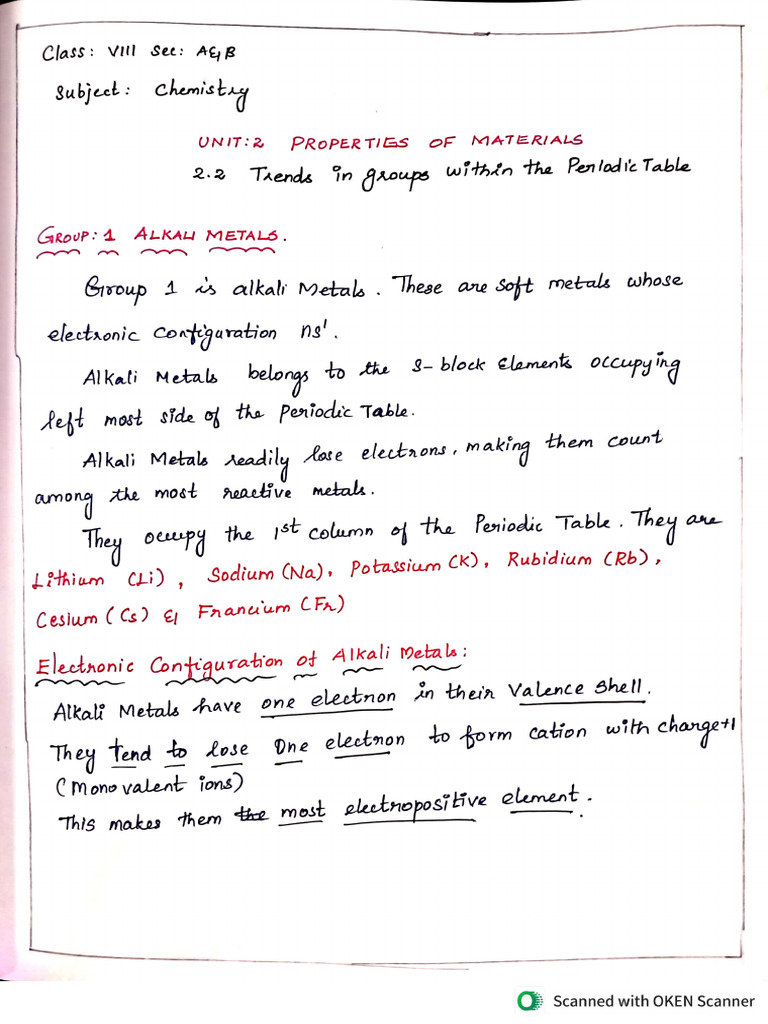 Class: VIII Sec: A & B
Subject: Chemistry
UNIT:2 PROPERTIES OF MATERIALS
2.2 Trends in groups within the Periodic Table
GROUP: 1 ALKALI METALS.
Group 1 is alkali Metals. These are soft metals whose
electronic configuration ns¹.
Alkali Metals belongs to the S-block Elements occupying
left most side of the Periodic Table.
Alkali Metals readily lose electrons, making them count
among the most reactive metals.
They occupy the 1st column of the Periodic Table. They are
Lithium (Li), Sodium (Na), Potassium (K), Rubidium (Rb),
Cesium (Cs) & Francium (Fr)
Electronic Configuration of Alkali Metals:
Alkali Metals have one electron in their Valence Shell.
They tend to lose One electron to form cation with charge+1
(Mono valent ions)
This makes them the most electropositive element.
Scanned with OKEN Scanner